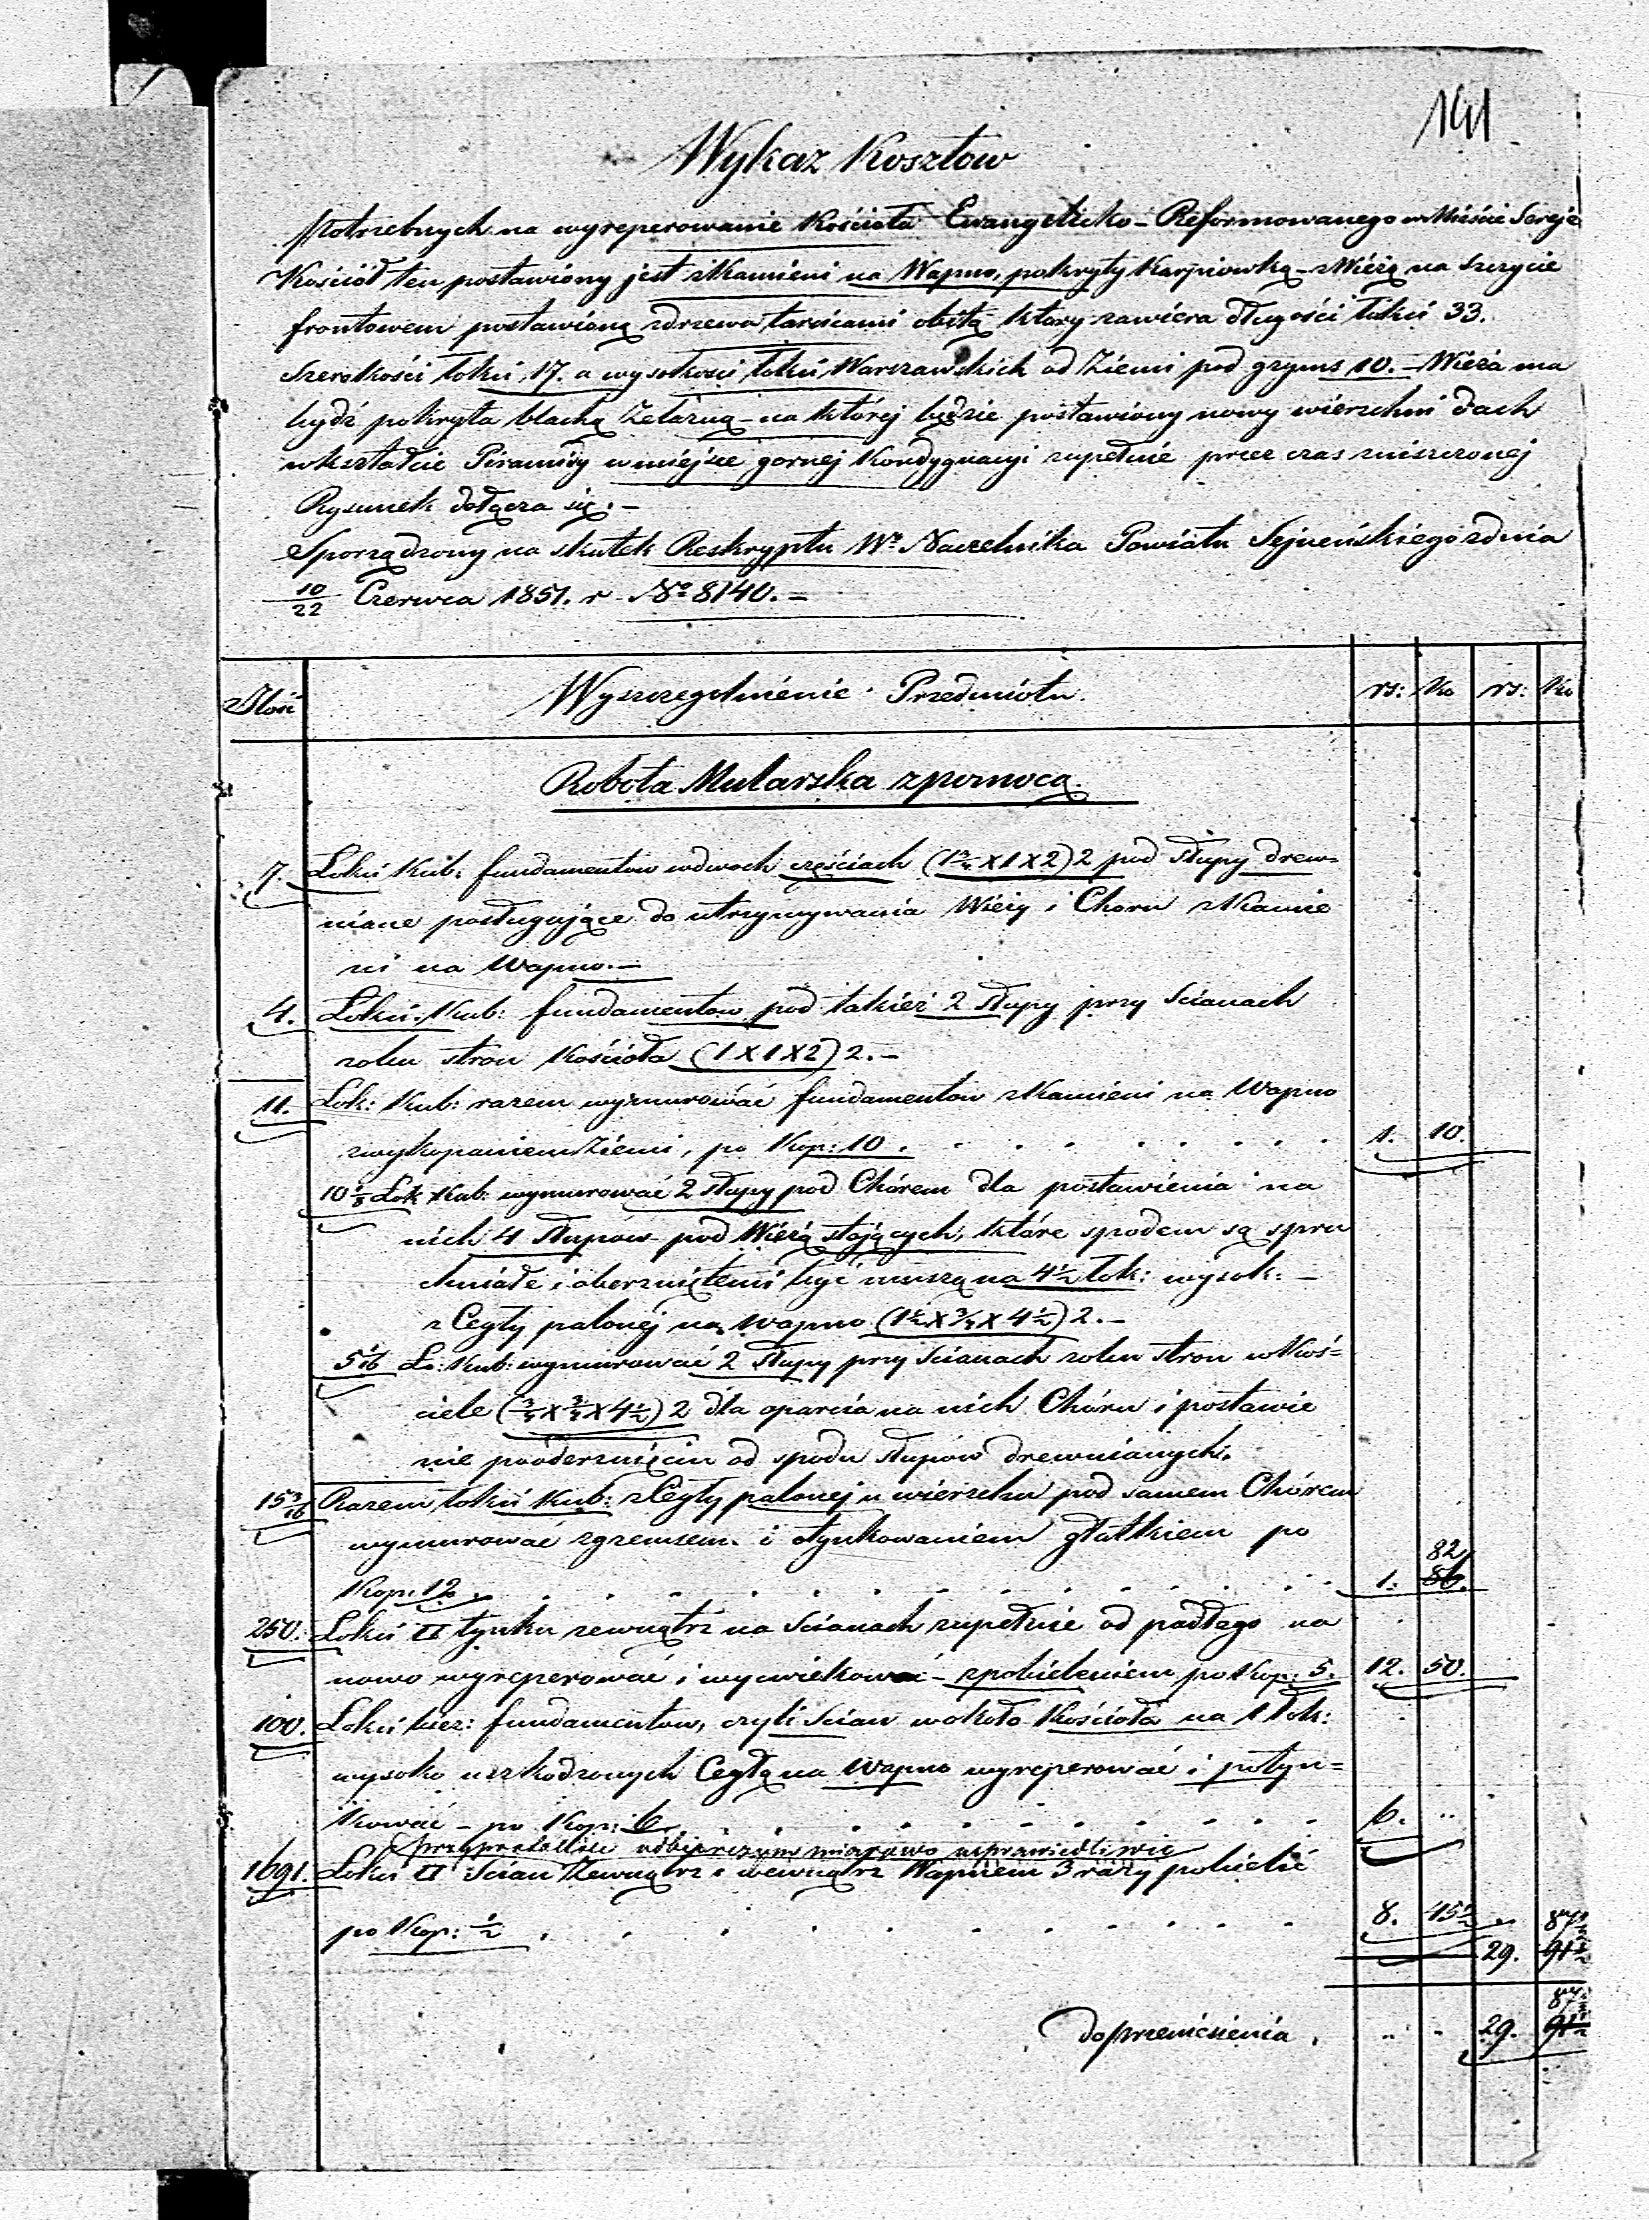 141
Wykaz Kosztow
potrzebnych na wyreperowanie Kościoła Ewangelicko-Reformowanego w Mieście Sereje
Kościoł ten postawiony jest z Kamieni na Wapno, pokryty Karpiowką - z Wieżą na szczycie
frontowem postawioną z drzewa tarcicami obitą który zawiera długości łokci 33.
Szerokości łokci 17. a wysokości łokci Warszawskich od Ziemi pod gzyms 10. - Wieża ma
bydź pokryta blachą żelazną - na której będzie postawiony nowy wierzchni dach
w kształcie Piramidy w miejsce gornej Kondygnacyi zupełnie przez czas zniszczonej
Rysunek dołącza się. -
Sporządzony na skutek Reskryptu Wo Naczelnika Powiatu Sejneńskiego z dnia
10/22 Czerwca 1851. r No 8140. -
Ilość Wyszczegolnienie Przedmiotu rs: ko rs: ko
Robota Mularska z pomocą.
7. Łokci Kub: fundamentow w dwoch częściach (1 3/4 x 1 x 2) 2 pod słupy drew=
niane posługujące do utrzymywania Wieży i Choru z Kamie
ni na Wapno. -
4. Łokci Kub: fundamentow pod takież 2 słupy przy Scianach
z obu stron Kościoła (1 x 1 x 2) 2. -
11. Łok: Kub: razem wymurować fundamentow z Kamieni na Wapno
z wykopaniem Ziemi, po Kop: 10 . 1. 10.
10 1/8 Łok Kub: wymurować 2 słupy pod Chórem dla postawienia na
nich 4 słupów pod Wieżą stojących, które spodem są spru
chniałe i oberznięteni być muszą na 4 1/2 łok: wysok: -
z Cegły palonéj na wapno (1 1/2 x 3/4 x 4 1/2) 2. -
5 1/16 Ło: Kub: wymurować 2 słupy przy Scianach z obu stron w Koś=
ciele (3/4 x 3/4 x 4 1/2) 2 dla oparcia na nich Chóru i postawie
nie po oderznięciu od spodu słupów drewnianych.
15 3/16 Razem łokci Kub: z Cegły palonej u wierzchu pod samem Chórem
wymurować z gzemsem i otynkowaniem gładkiem po
Kop: 12 . 1. 86. 82
250. Łokci □ tynku zewnątrz na Scianach zupełnie od padłego na
nowo wyreperować i wycwiekować - z pobieleniem po Kop: 5. 12. 50.
100. Łokci bież: fundamentow, czyli Scian wokoło Kościoła na 1 łok:
wysoko uszkodzonych Cegłą na wapno wyreperować i potyn=
kować - po Kop: 6. 6. "
przy protokólle odbiorczym miarowo usprawiedliwić
1691. Łokci □ Scian Zewnątrz i wewnątrz Wapnem 3 razy pobielić
po Kop: 1/2 . 8. 45 1/2
29. 91 1/2 87 1/2
do przeniesienia . " " 29. 91 1/2 87 1/2